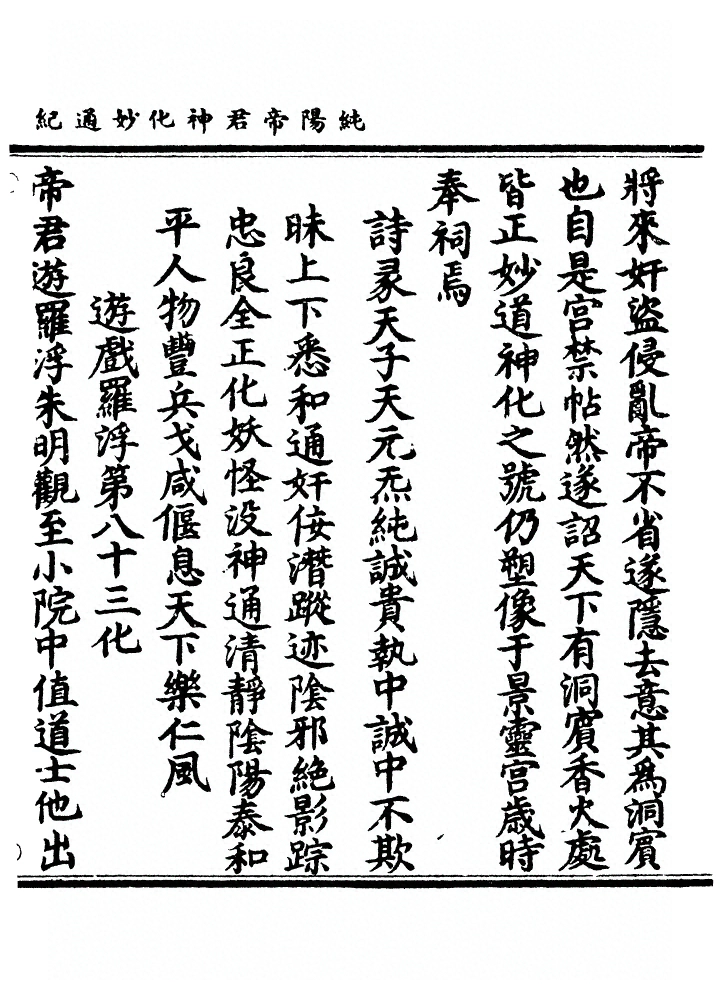 純陽帝君神化妙通紀
將來奸盜侵亂帝不省遂隱去意其為洞賓
也自是宮禁帖然遂詔天下有洞賓香火處
皆正妙道神化之號仍塑像于景靈宮歲時
奉祠焉
詩彖天子天元炁純誠貴執中誠中不欺
昧上下悉和通奸佞潛蹤迹陰邪絕影踪
忠良全正化妖怪没神通清靜陰陽泰和
平人物豐兵戈咸偃息天下樂仁風
遊戲羅浮第八十三化
帝君遊羅浮朱明觀至小院中值道士他出